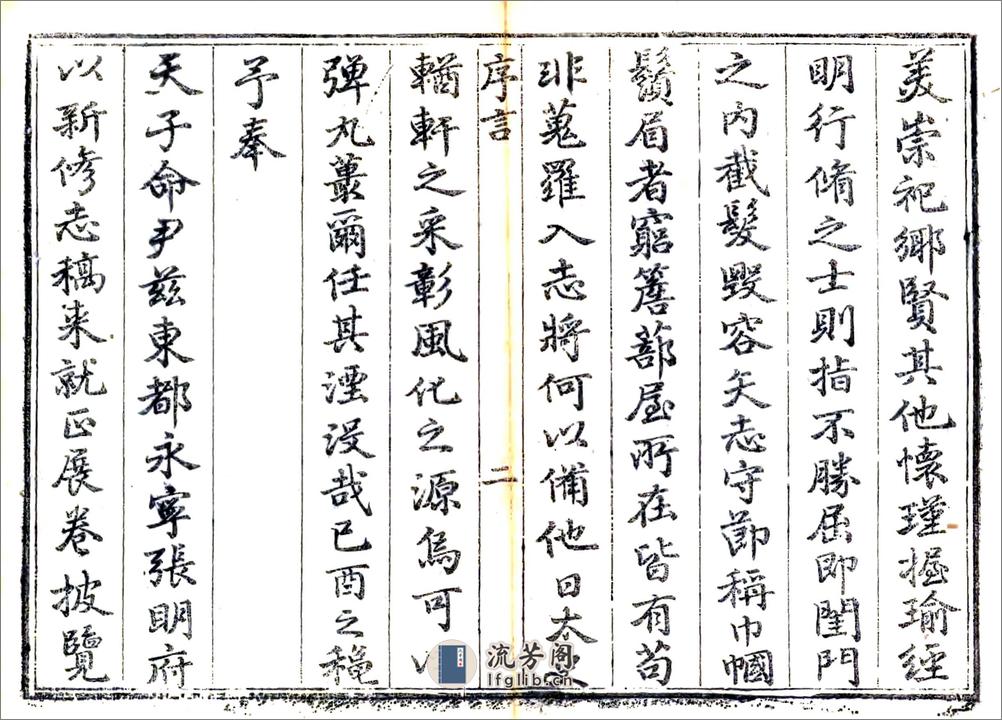 美崇祀鄉賢其他懷瑾握瑜經
明行脩之士則指不勝屈即閨門
之內截髮毀容矢志守節稱巾幗
鬚眉者窮簷蔀屋所在皆有苟
非蒐羅入志將何以備他日太
序言
二
輶軒之采彰風化之源烏可以
彈丸蕞爾任其湮没哉已酉之穐
予奉
天子命尹茲東都永寧張明府
以新修志稿来就正展卷披覽
流芳阁
lfglib.cn